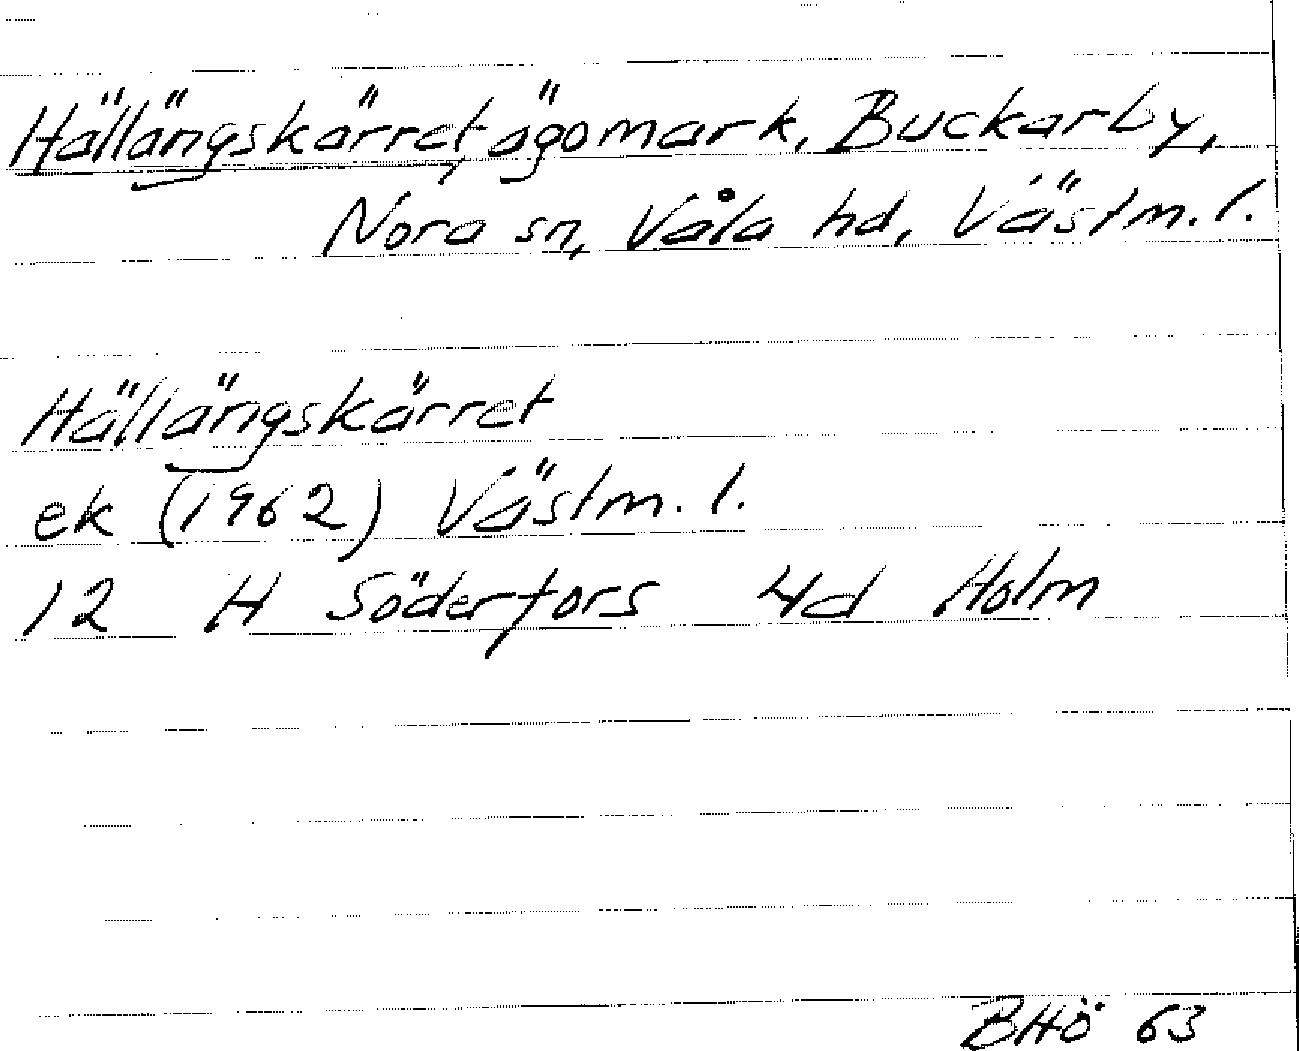 Hällängskärret, ägomark, Buckarby,
Nora sn, Våla hd, Västm. l.
Hällängskärret
ek (1962) Västm. l.
12 H Söderfors 4d Holm
BHÖ 63